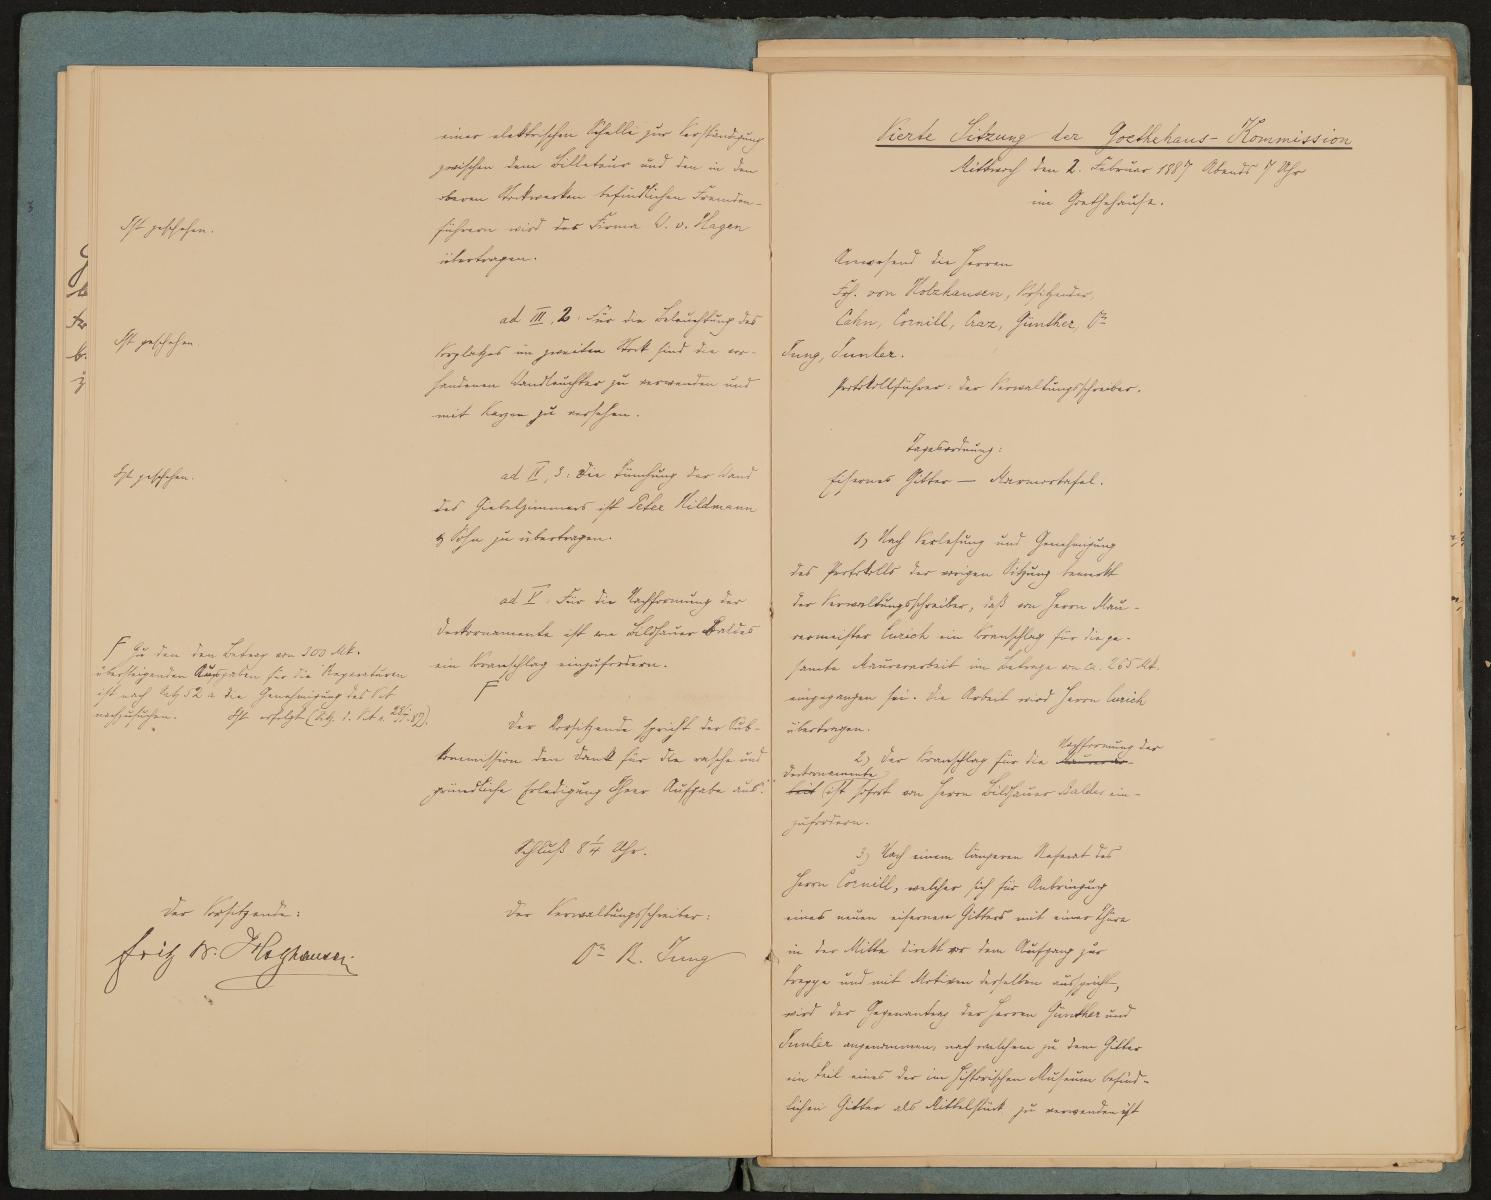 einer elektrischen Schelle zur Verständigung
zwischen dem Billeteur und den in den
oberen Stockwerken befindlichen Fremden-
Ist geschehen.
führern wird der Firma C. v. Hagen
übertragen.
ad III, 2: Für die Beleuchtung des
Ist geschehen.
Vorplatzes im zweiten Stock sind die vor-
handenen Wandleuchter zu verwenden und
mit Kerzen zu versehen.
Ist geschehen.
ad IV, 3: Die Tünchung der Wand
des Giebelzimmers ist Peter Hildmann
& Sohn zu übertragen.
ad V: Für die Nachformung der
Dekornamente ist von Bildhauer Baldes
ein Voranschlag einzufordern.
F
F Zu den den Betrag von 300 Mk.
übersteigenden Ausgaben für die Reparaturen
ist nach Satz 52 a die Genehmigung des V.A.
nachzusuchen. Ist erfolgt (Sitz. d. V.A. v. 28/I. 87).
Der Vorsitzende spricht der Sub-
kommission den Dank für die rasche und
gründliche Erledigung Ihrer Aufgabe aus.
Schluß 8 1/4 Uhr.
Der Vorsitzende:
Fritz v. Holzhausen.
Der Verwaltungsschreiber:
Dr R. Jung
Vierte Sitzung der Goethehaus-Kommission
Mittwoch den 2. Februar 1887 Abends 7 Uhr
im Goethehause.
Anwesend die Herren
Frh. von Holzhausen, Vorsitzender,
Cahn, Cornill, Craz, Günther, Dr
Jung, Junker.
Protokollführer: der Verwaltungsschreiber.
Tagesordnung:
Eisernes Gitter — Marmortafel.
1) Nach Verlesung und Genehmigung
des Protokolls der vorigen Sitzung bemerkt
der Verwaltungsschreiber, daß von Herrn Mau-
rermeister Eurich ein Voranschlag für die ge-
samte Maurerarbeit im Betrage von ca. 265 Mk.
eingegangen sei. Die Arbeit wird Herrn Eurich
übertragen.
2) Der Voranschlag für die Maurerar- Nachformung der
beit Dekornamente ist sofort von Herrn Bildhauer Baldes ein-
zufordern.
3) Nach einem längeren Referat des
Herrn Cornill, welcher sich für Anbringung
eines neuen eisernen Gitters mit einer Thüre
in der Mitte direkt vor dem Aufgang zur
Treppe und mit Motiven derselben ausspricht,
wird der Gegenantrag der Herren Günther und
Junker angenommen, nach welchem zu dem Gitter
ein Teil eines der im historischen Museum befind-
lichen Gitter als Mittelstück zu verwenden ist